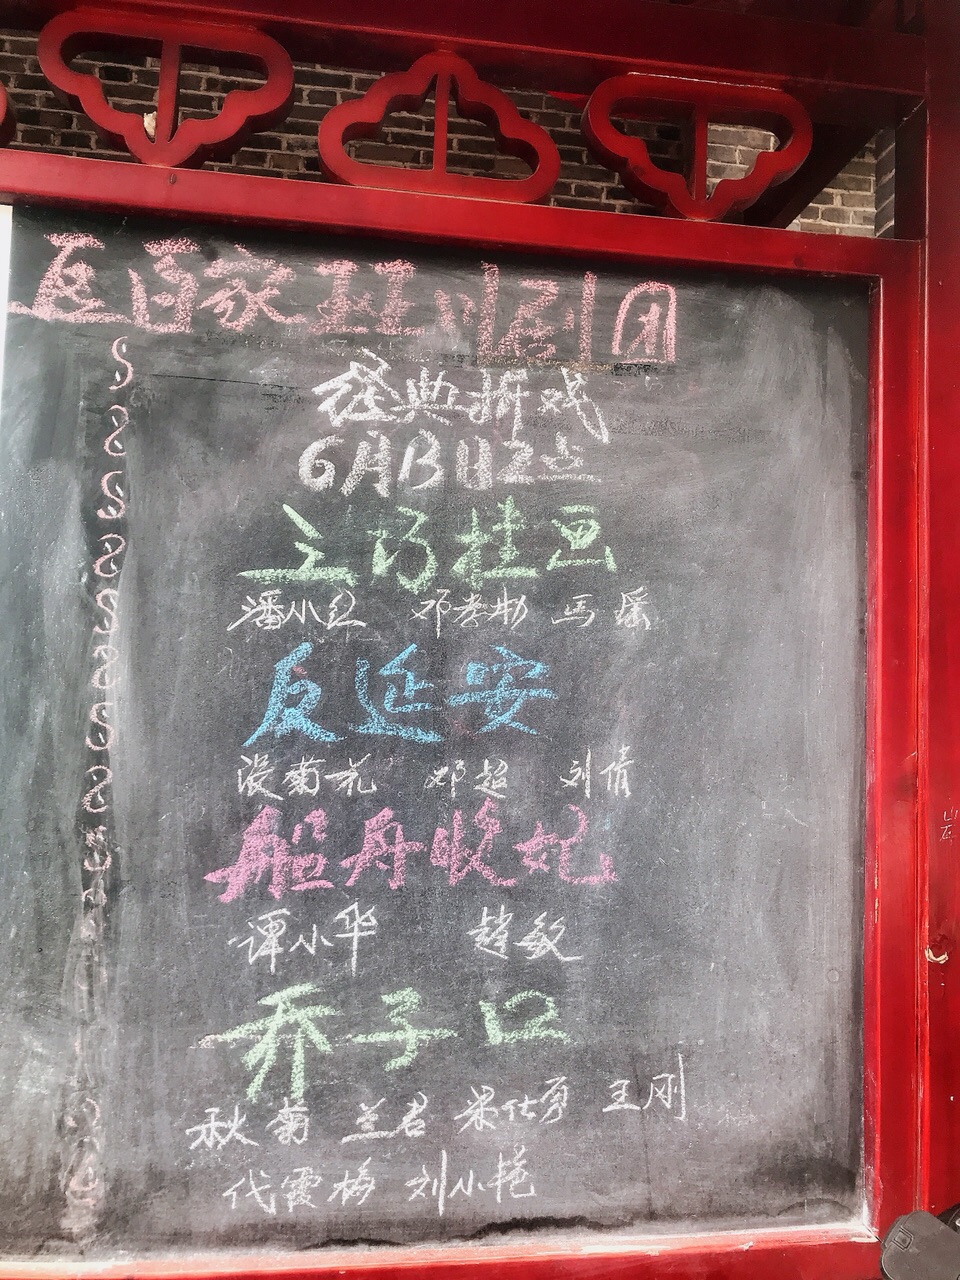 百家班川剧团
经典折戏
6月13日2点
三巧挂画
潘小红 邓孝勤 马瑶
反延安
漫菊花 邓超 刘倩
船舟收妃
谭小华 赵敏
乔子口
秋菊 兰君 梁仕勇 王刚
代霞梅 刘小艳